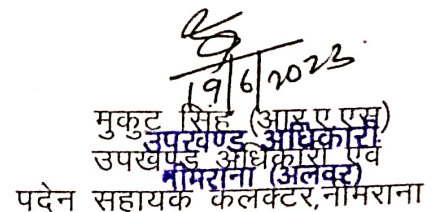 19/6/2023
मुकुट सिंह (आर.ए.एस)
उपखण्ड अधिकारी
उपखण्ड अधिकारी एवं
नीमराना (अलवर)
पदेन सहायक कलक्टर,नीमराना